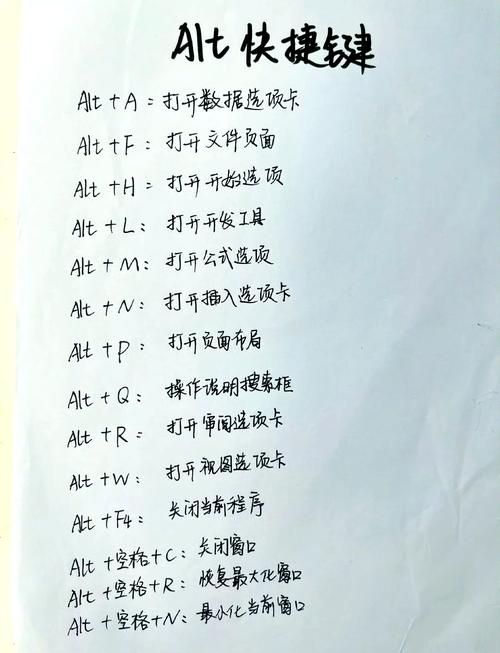 Alt 快捷键
Alt + A：打开数据选项卡
Alt + F：打开文件页面
Alt + H：打开开始选项
Alt + L：打开开发工具
Alt + M：打开公式选项
Alt + N：打开插入选项卡
Alt + P：打开页面布局
Alt + Q：操作说明搜索框
Alt + R：打开审阅选项卡
Alt + W：打开视图选项卡
Alt + F4：关闭当前程序
Alt + 空格 + C：关闭窗口
Alt + 空格 + R：恢复最大化窗口
Alt + 空格 + N：最小化当前窗口